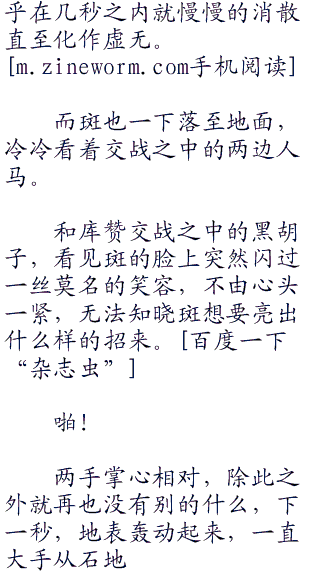 乎在几秒之内就慢慢的消散
直至化作虚无。
[m.zineworm.com手机阅读]
而斑也一下落至地面，
冷冷看着交战之中的两边人
马。
和库赞交战之中的黑胡
子，看见斑的脸上突然闪过
一丝莫名的笑容，不由心头
一紧，无法知晓斑想要亮出
什么样的招来。[百度一下
“杂志虫”]
啪！
两手掌心相对，除此之
外就再也没有别的什么，下
一秒，地表轰动起来，一直
大手从石地